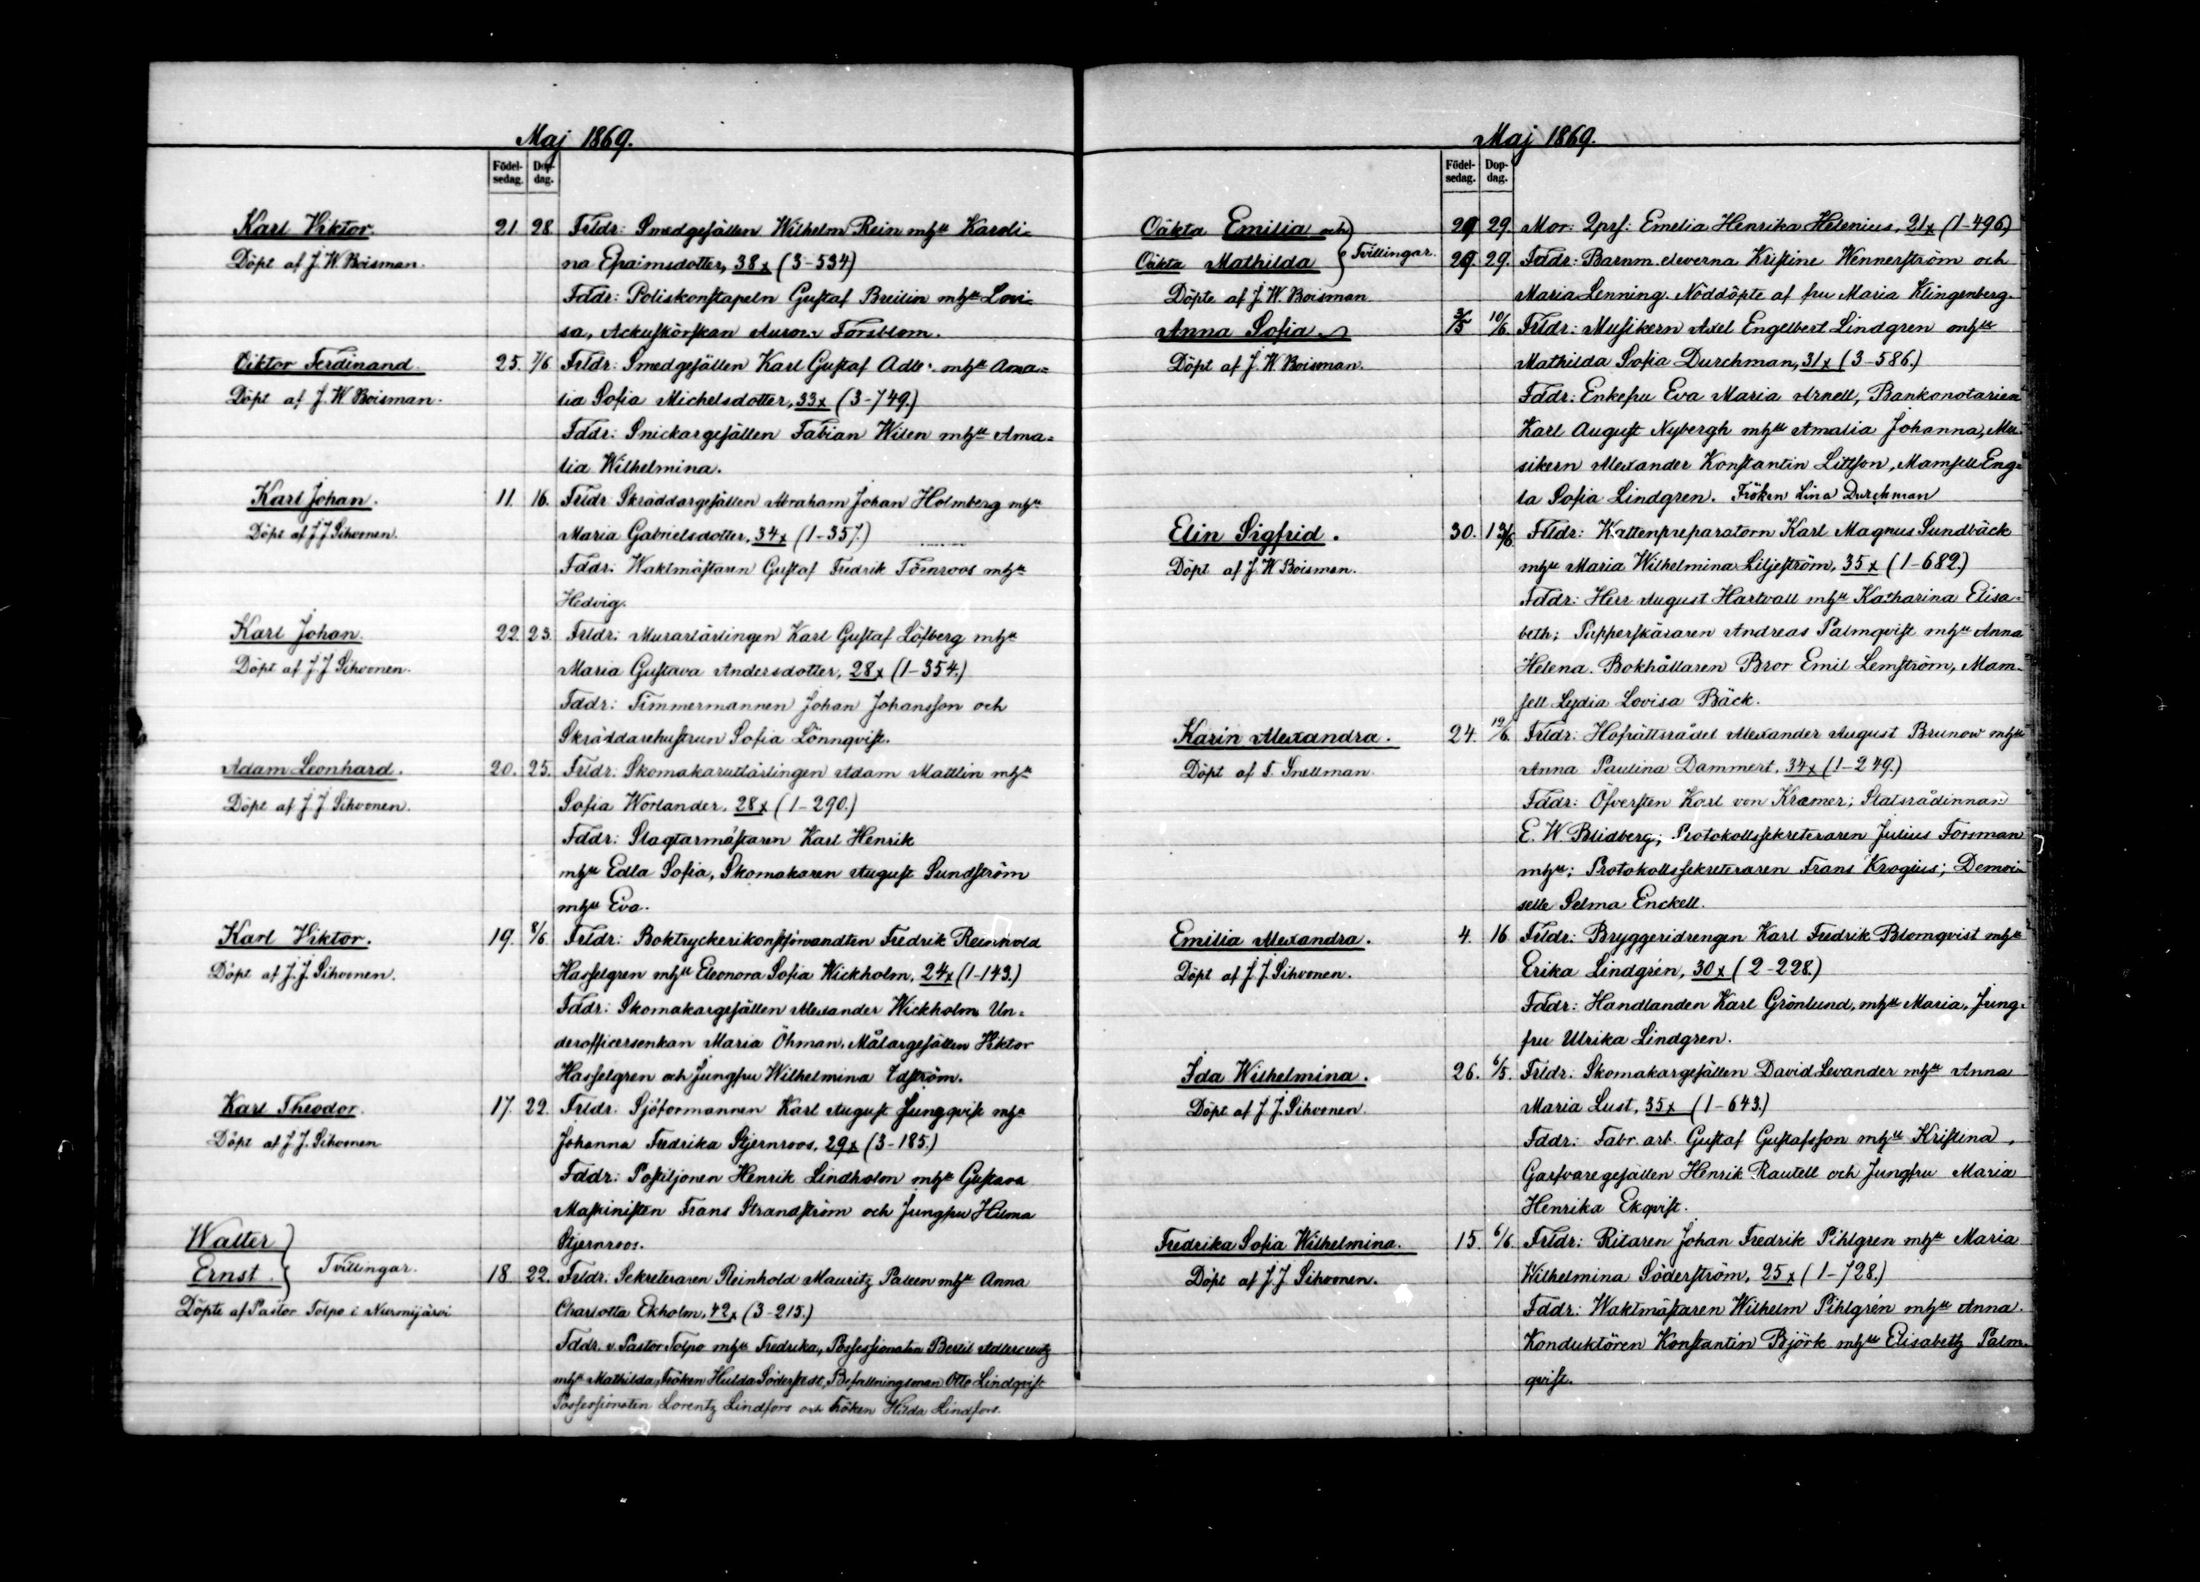 Maj 1869.
Födel-
sedag.
Dop-
dag.
Karl Viktor 21. 28. Frldr: Smedgesällen Wilhelm Rein mhu Karoli-
Döpt af J. W. Boisman. na Efraimsdotter, 38x (3-534)
Fddr: Poliskonstapeln Gustaf Breilin mhu Lovi-
sa, Ackuskörskan Aurora Forsblom.
Viktor Ferdinand 25. 1/6 Frldr: Smedgesällen Karl Gustaf Adle mhu Ama-
Döpt af J. W. Boisman. lia Sofia Michelsdotter, 33x (3-749.)
Fddr: Snickargesällen Fabian Wilen mhu Ama-
lia Wilhelmina.
Karl Johan. 11. 16. Frldr Skräddargesällen Abraham Johan Holmberg mhu
Döpt af J. J. Sihvonen. Maria Gabrielsdotter, 34x (1-357.)
Fddr. Waktmästaren Gustaf Fredrik Törnroos mhu
Hedvig.
Karl Johan. 22. 23. Frldr: Murarlärlingen Karl Gustaf Löfberg mhu
Döpt af J. J. Sihvonen. Maria Gustava Andersdotter, 28x (1-354.)
Fddr: Timmermannen Johan Johansson och
Skräddarehustrun Sofia Lönnqvist.
Adam Leonhard. 20. 25. Frldr: Skomakarutlärlingen Adam Mattlin mhu
Döpt af J. J. Sihvonen. Sofia Worlander, 28x (1-290.)
Fddr: Slagtarmästaren Karl Henrik
mhu Edla Sofia, Skomakaren August Sundström
mhu Eva.
Karl Viktor. 19. 8/6 Frldr: Boktryckerikonstförvandten Fredrik Reinhold
Döpt af J. J. Sihvonen. Hasselgren mhu Eleonora Sofia Wickholm, 24x (1-143.)
Fddr: Skomakargesällen Alexander Wickholm Un-
derofficersenkan Maria Öhman, Målargesällen Viktor
Hasselgren och Jungfru Wilhelmina Edström.
Karl Theodor. 17. 22. Frldr: Sjöformannen Karl August Ljungqvist mhu
Döpt af J. J. Sihvonen Johanna Fredrika Stjernroos, 29x (3-185.)
Fddr: Postiljonen Henrik Lindholm mhu Gustava
Maskinisten Frans Strandström och Jungfru Hilma
Walter Stjernroos.
Ernst. Tvillingar. 18. 22. Frldr: Sekreteraren Reinhold Mauritz Paleen mhu Anna
Döpte af Pastor Tolpo i Nurmijärvi Charlotta Ekholm, 42x (3-215.)
Fddr. v. Pastor Tolpo mhu Fredrika, Possessionaten Bertil Adlercreutz
mhu Mathilda, Fröken Hulda Söderstedt, Befallningsman Otto Lindqvist
Possessionaten Lorentz Lindfors och Fröken Hilda Lindfors.
Maj 1869.
Födel-
sedag.
Dop-
dag.
Oäkta Emilia och 29 29. Mor: Qprs: Emelia Henrika Helenius, 21x (1-496)
Oäkta Mathilda Tvillingar. 29 29. Fddr: Barnm. eleverna Kristine Wennerström och
Döpte af J. W. Boisman. Maria Lenning. Nöddöpte af fru Maria Klingenberg.
Anna Sofia. 10/6. Frldr: Musikern Axel Engelbert Lindgren mhu
Döpt af J. W. Boisman. Mathilda Sofia Durchman, 31x (3-586.)
Fddr: Enkefru Eva Maria Arnell, Bankonotarien
Karl August Nybergh mhu Amalia Johanna, Mu-
sikern Alexander Konstantin Littson, Mamsell Eng-
la Sofia Lindgren. Fröken Lina Durchman
Elin Sigfrid. 30. 13/6 Frldr: Wattenpreparatorn Karl Magnus Sundbäck
Döpt af J. W. Boisman. mhu Maria Wilhelmina Liljeström, 35x (1-682.)
Fddr: Herr August Hartvall mhu Katharina Elisa-
beth; Supperskäraren Andreas Palmqvist mhu Anna
Helena. Bokhållaren Bror Emil Lemström, Mam-
sell Lydia Lovisa Bäck.
Karin Alexandra. 24. 19/6. Frldr: Hofrättsrådet Alexander August Brunow mhu
Döpt af T. Snellman. Anna Paulina Dammert, 34x (1-249.)
Fddr: Öfversten Karl von Kræmer; Statsrådinnan
E. W. Blidberg; Protokollssekreteraren Julius Forsman
mhu; Protokollssekreteraren Frans Krogius; Demoi-
selle Selma Enckell.
Emilia Alexandra. 4. 16 Frldr: Bryggeridrengen Karl Fredrik Blomqvist mhu
Döpt af J. J. Sihvonen. Erika Lindgrén, 30x (2-228.)
Fddr: Handlanden Karl Grönlund, mhu Maria, Jung-
fru Ulrika Lindgren.
Ida Wilhelmina. 26. 6/5. Frldr: Skomakargesällen David Levander mhu Anna
Döpt af J. J. Sihvonen. Maria Lust, 35x (1-643.)
Fddr: Fabr. arb. Gustaf Gustafsson mhu Kristina,
Garfvaregesällen Henrik Rautell och Jungfru Maria
Henrika Ekqvist.
Fredrika Sofia Wilhelmina. 15. 6/6. Frldr: Ritaren Johan Fredrik Pihlgren mhu Maria
Döpt af J. J. Sihvonen. Wilhelmina Söderström, 25x (1-728.)
Fddr: Waktmästaren Wilhelm Pihlgrén mhu Anna.
Konduktören Konstantin Björk mhu Elisabeth Palm-
qvist.